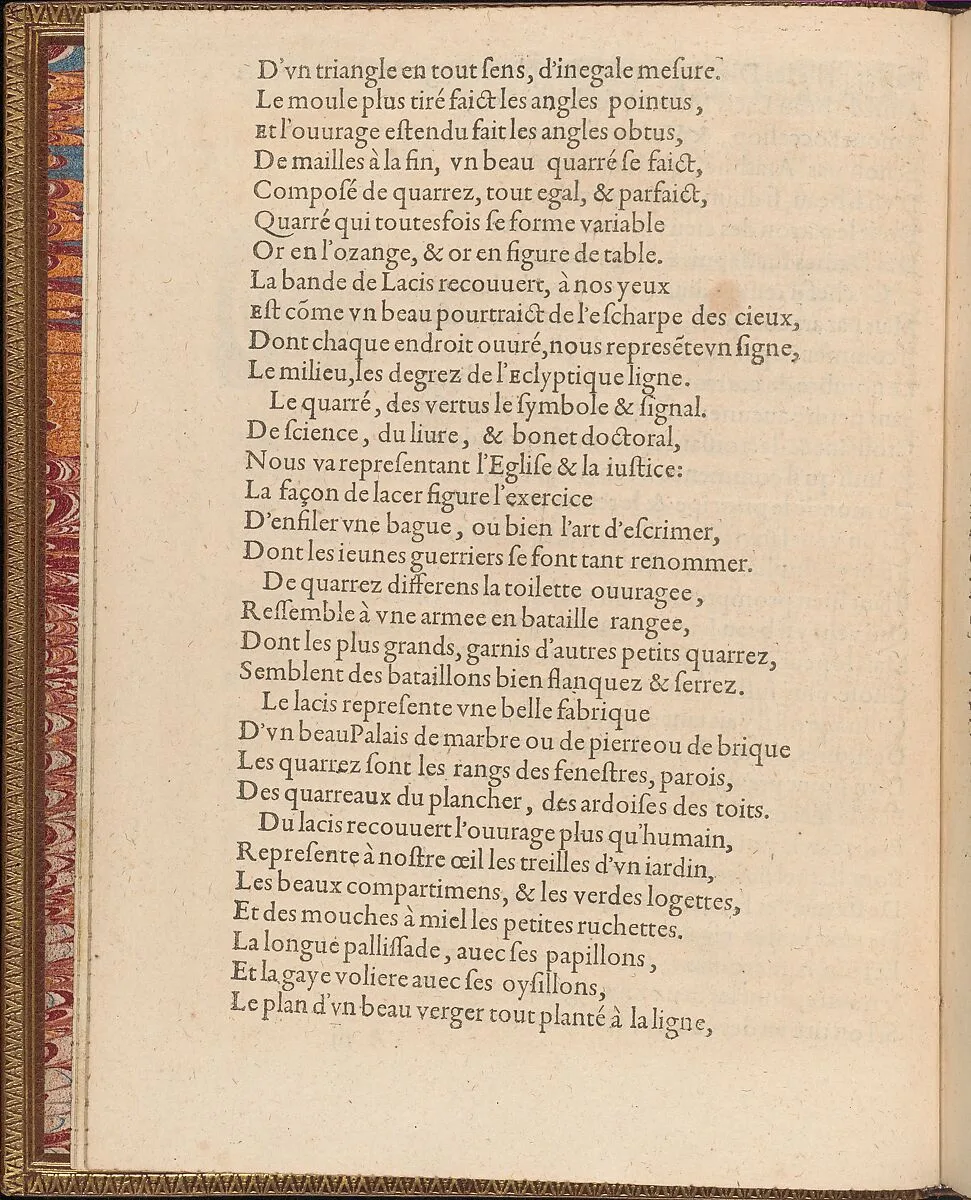 D'vn triangle en tout ſens, d'inegale meſure.
Le moule plus tiré faict les angles pointus,
Et l'ouurage eſtendu fait les angles obtus,
De mailles à la fin, vn beau quarré ſe faict,
Compoſé de quarrez, tout egal, & parfaict,
Quarré qui toutesfois ſe forme variable
Or en l'ozange, & or en figure de table.
La bande de Lacis recouuert, à nos yeux
Eſt cõme vn beau pourtraict de l'eſcharpe des cieux,
Dont chaque endroit ouuré, nous repreſẽte vn ſigne,
Le milieu, les degrez de l'Eclyptique ligne.
Le quarré, des vertus le ſymbole & ſignal.
De ſcience, du liure, & bonet doctoral,
Nous va repreſentant l'Egliſe & la iuſtice:
La façon de lacer figure l'exercice
D'enfiler vne bague, ou bien l'art d'eſcrimer,
Dont les ieunes guerriers ſe font tant renommer.
De quarrez differens la toilette ouuragee,
Reſſemble à vne armee en bataille rangee,
Dont les plus grands, garnis d'autres petits quarrez,
Semblent des bataillons bien flanquez & ſerrez.
Le lacis repreſente vne belle fabrique
D'vn beau Palais de marbre ou de pierre ou de brique
Les quarrez ſont les rangs des feneſtres, parois,
Des quarreaux du plancher, des ardoiſes des toits.
Du lacis recouuert l'ouurage plus qu'humain,
Repreſente à noſtre œil les treilles d'vn iardin,
Les beaux compartimens, & les verdes logettes,
Et des mouches à miel les petites ruchettes.
La longue palliſſade, auec ſes papillons,
Et la gaye voliere auec ſes oyſillons,
Le plan d'vn beau verger tout planté à la ligne,